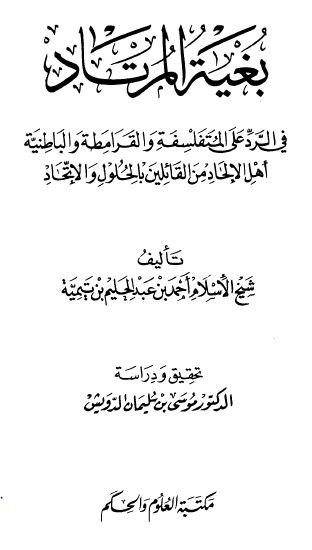 بُغْيَةُ المُرْتَاد
فِي الرَّدِّ عَلَى المُتَفَلْسِفَةِ وَالقَرَامِطَةِ وَالبَاطِنِيَّةِ
أَهْلِ الإِلْحَادِ مِنَ القَائِلِينَ بِالحُلُولِ وَالإِتِّحَادِ
تَأليفُ
شَيْخِ الأسْلَام أَحْمَد بْن عَبْد الحَلِيم بْن تَيْمِيَّة
تحقيق وَدِراسَة
الدكتور مُوسَى بْن سُلَيمَان الدّوَيش
مكتبة العُلُوم وَالحِكَم